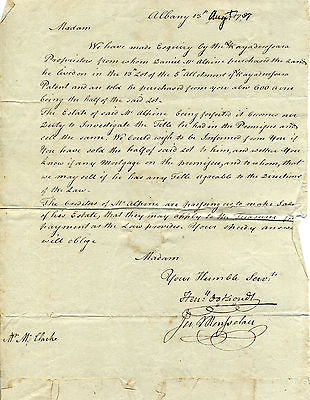 Albany 13th Augt 1787
Madam
We have made Enquiry by the Kayadarosora
Proprietors from whom Daniel McAlpine purchased the Land
he lived on in the 13 Lot of the 5 Allotment of Kayadarosora
Patent and are told he purchased from you abt 600 acres
being the half of the said Lot.
The Estate of said Mr Alpine being forfeited it becomes our
Duty to Investigate the Title he had in the Premises and
sell the same. We Could wish to be Informed from You if
You have sold the half of said Lot to him, and wether You
know if any Mortgage on the premises, and to whom, that
we may sell if he has any Title Agreable to the Directions
of the Law.
The Creditors of Mr Alpine are pressing us to make Sale
of his Estate, that they may apply to the Treasurer for
payment as the Law provides. Your speedy answer
will oblige
Madam
Your Humble Servts
Henry Oothoudt
Jer. V Rensselaer
Mrs McClarke